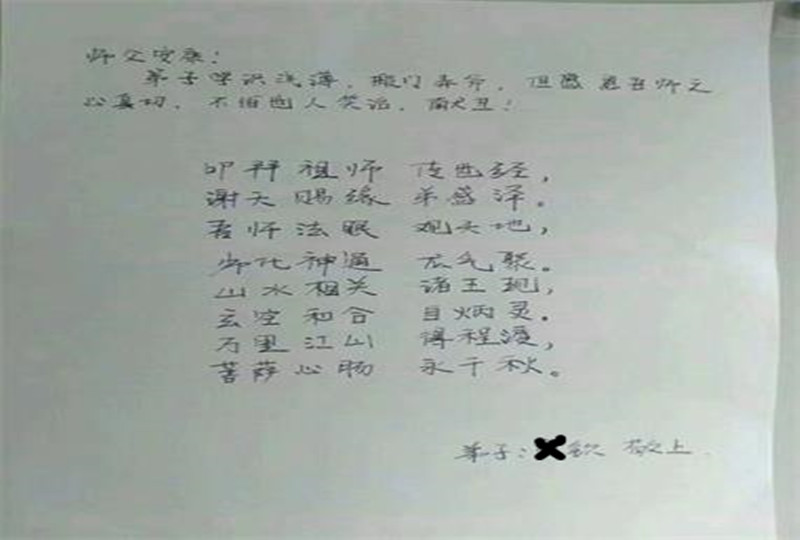 师父安康！
弟子学识浅薄，班门弄斧，但感恩吾师之
心真切，不怕他人笑话，献丑！
叩拜祖师 传世经，
谢天赐缘 弟盛泽。
吾师法眼 观天地，
师化神通 龙气聚。
山水相关 诸王现，
玄空和合 目炳灵。
万里江山 得程漫，
菩萨心肠 永千秋。
弟子： 钦 敬上